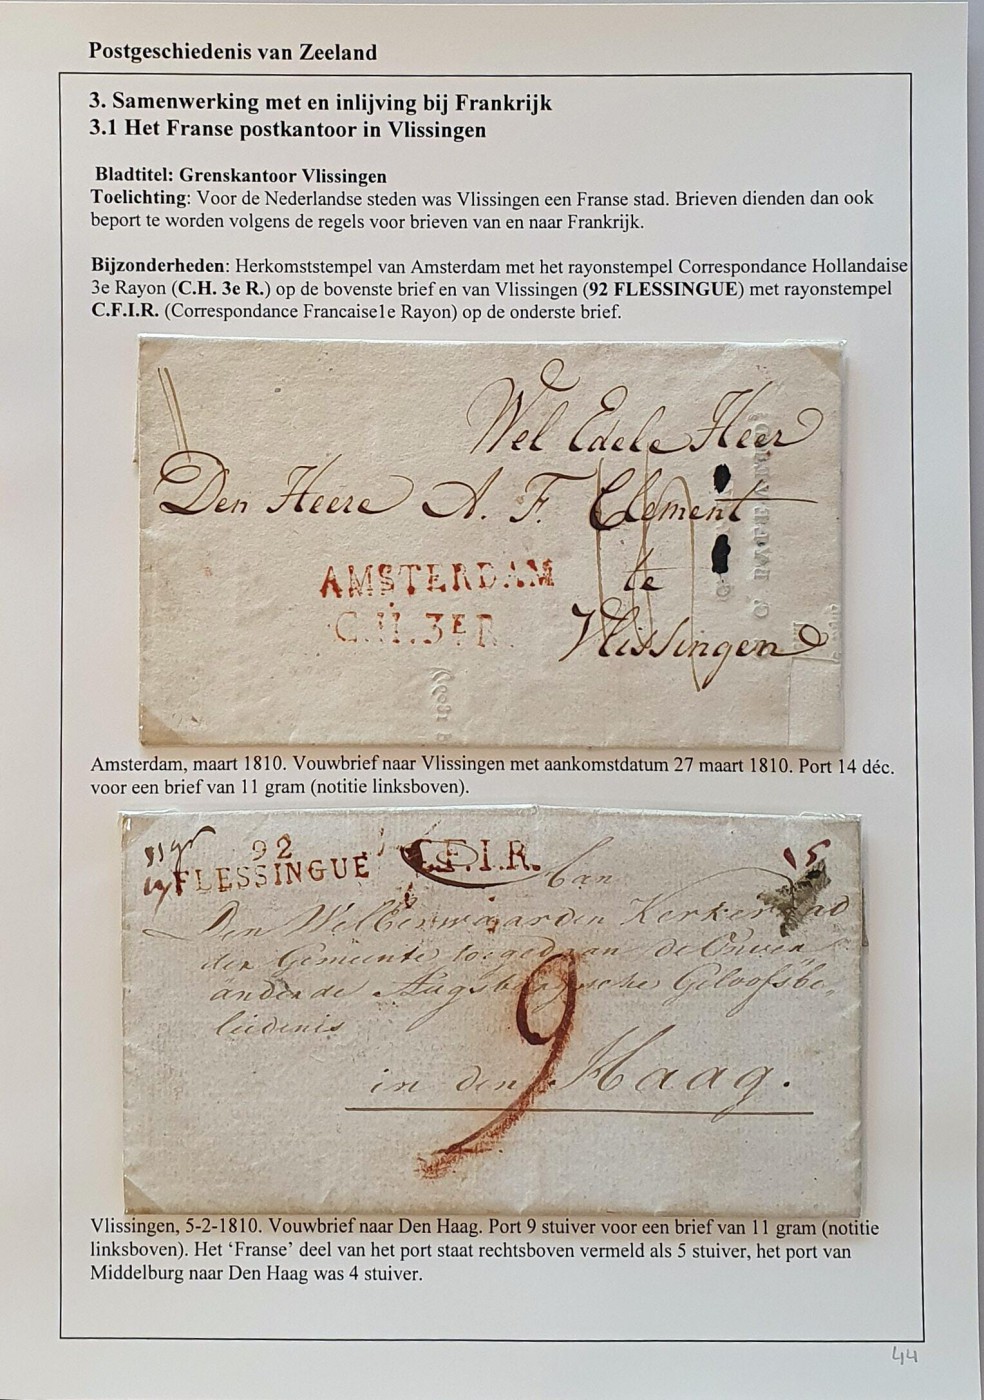 Postgeschiedenis van Zeeland
3. Samenwerking met en inlijving bij Frankrijk
3.1 Het Franse postkantoor in Vlissingen
Bladtitel: Grenskantoor Vlissingen
Toelichting: Voor de Nederlandse steden was Vlissingen een Franse stad. Brieven dienden dan ook
beport te worden volgens de regels voor brieven van en naar Frankrijk.
Bijzonderheden: Herkomststempel van Amsterdam met het rayonstempel Correspondance Hollandaise
3e Rayon (C.H. 3e R.) op de bovenste brief en van Vlissingen (92 FLESSINGUE) met rayonstempel
C.F.I.R. (Correspondance Francaise1e Rayon) op de onderste brief.
Wel Edele Heer
Den Heere A. F. Clement
te
Vlissingen
AMSTERDAM
C.H. 3E R.
Amsterdam, maart 1810. Vouwbrief naar Vlissingen met aankomstdatum 27 maart 1810. Port 14 déc.
voor een brief van 11 gram (notitie linksboven).
92
FLESSINGUE
C.F.I.R.
5
Den Kerkeraad
der Gemeente toegedaan de Onver
anderde Augsburgsche Geloofsbe
lijdenis
in den Haag.
9
Vlissingen, 5-2-1810. Vouwbrief naar Den Haag. Port 9 stuiver voor een brief van 11 gram (notitie
linksboven). Het ‘Franse’ deel van het port staat rechtsboven vermeld als 5 stuiver, het port van
Middelburg naar Den Haag was 4 stuiver.
44